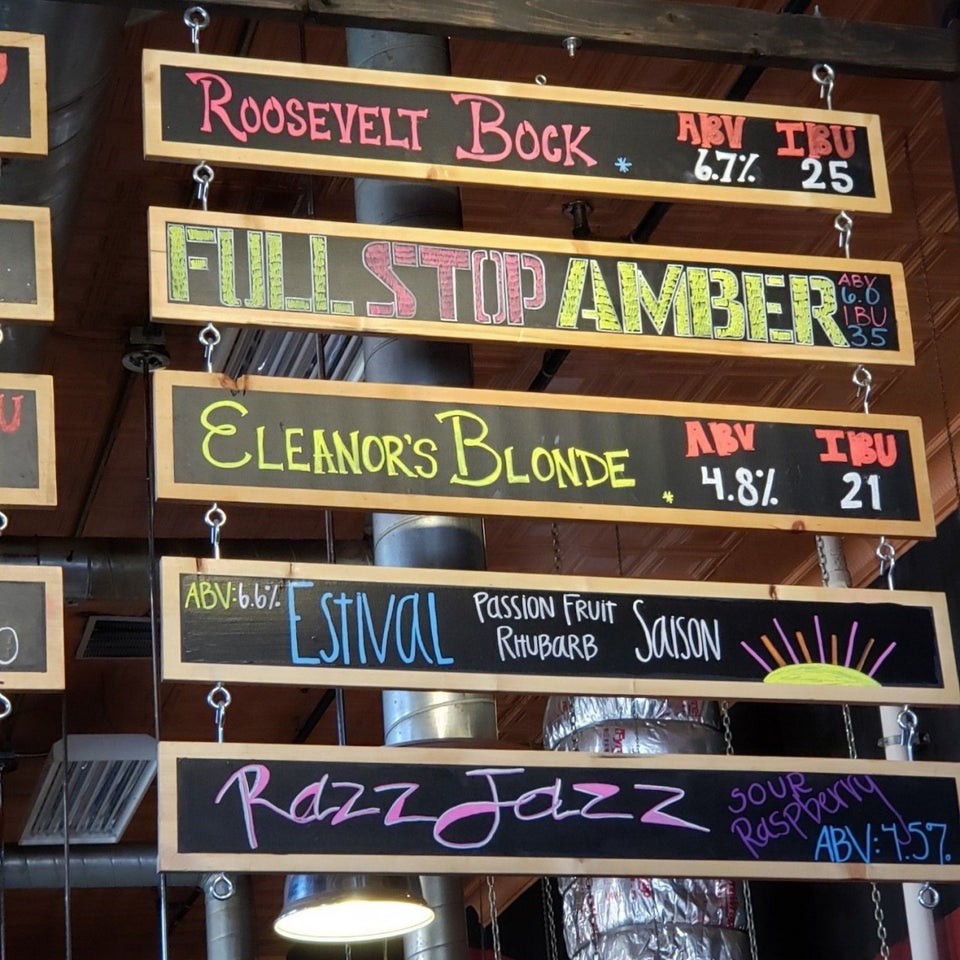 ROOSEVELT BOCK * ABV IBU
6.7% 25
FULL STOP AMBER ABV
6.0
IBU
35
ELEANOR'S BLONDE * ABV IBU
4.8% 21
ABV: 6.6% ESTIVAL PASSION FRUIT SAISON
RHUBARB
RAZZ JAZZ SOUR
Raspberry
ABV: 4.5%
U